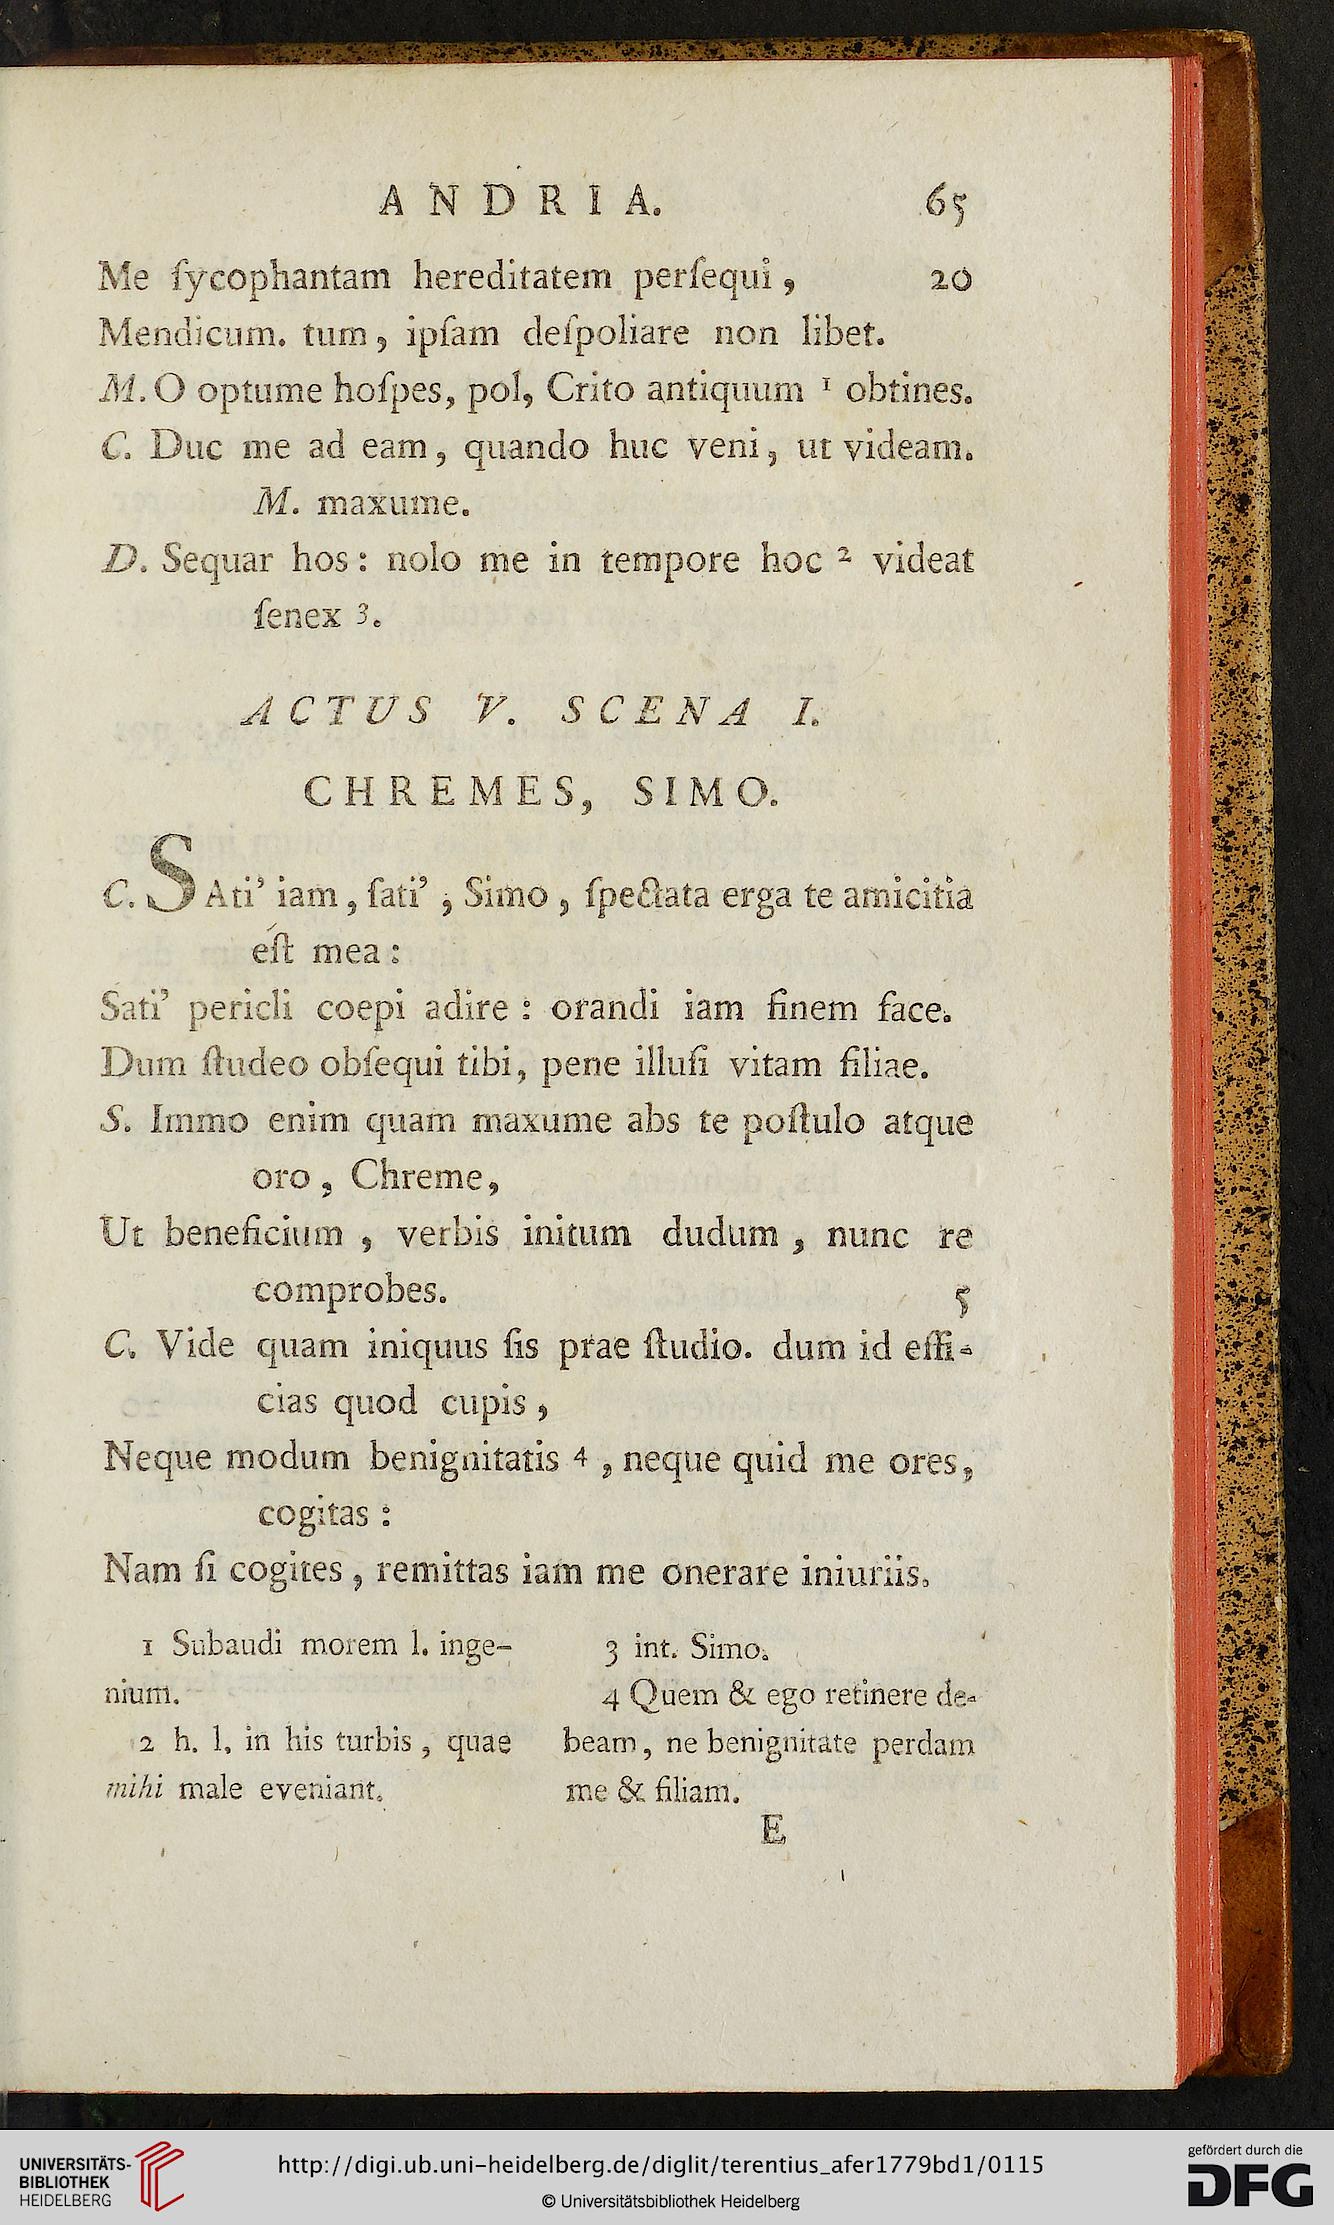 ANDRIA. 65
Me ſycophantam hereditatem perſequi, 20
Mendicum. tum, ipſam deſpoliare non libet.
M. O optume hoſpes, pol, Crito antiquum ¹ obtines.
C. Duc me ad eam, quando huc veni, ut videam.
M. maxume.
D. Sequar hos: nolo me in tempore hoc ² videat
ſenex ³.
ACTUS V. SCENA I.
CHREMES, SIMO.
C. SAti’ iam, ſati’, Simo, ſpectata erga te amicitia
eſt mea:
Sati’ pericli coepi adire: orandi iam finem face.
Dum ſtudeo obſequi tibi, pene illuſi vitam filiae.
S. Immo enim quam maxume abs te poſtulo atque
oro, Chreme,
Ut beneficium, verbis initum dudum, nunc re
comprobes. 5
C. Vide quam iniquus ſis prae ſtudio. dum id effi-
cias quod cupis,
Neque modum benignitatis ⁴, neque quid me ores,
cogitas:
Nam ſi cogites, remittas iam me onerare iniuriis.
1 Subaudi morem l. inge-
nium.
2 h. l. in his turbis, quae
mihi male eveniant.
3 int. Simo.
4 Quem & ego retinere de-
beam, ne benignitate perdam
me & filiam.
E
UNIVERSITÄTS-
BIBLIOTHEK
HEIDELBERG
http://digi.ub.uni-heidelberg.de/diglit/terentius_afer1779bd1/0115
© Universitätsbibliothek Heidelberg
gefördert durch die
DFG